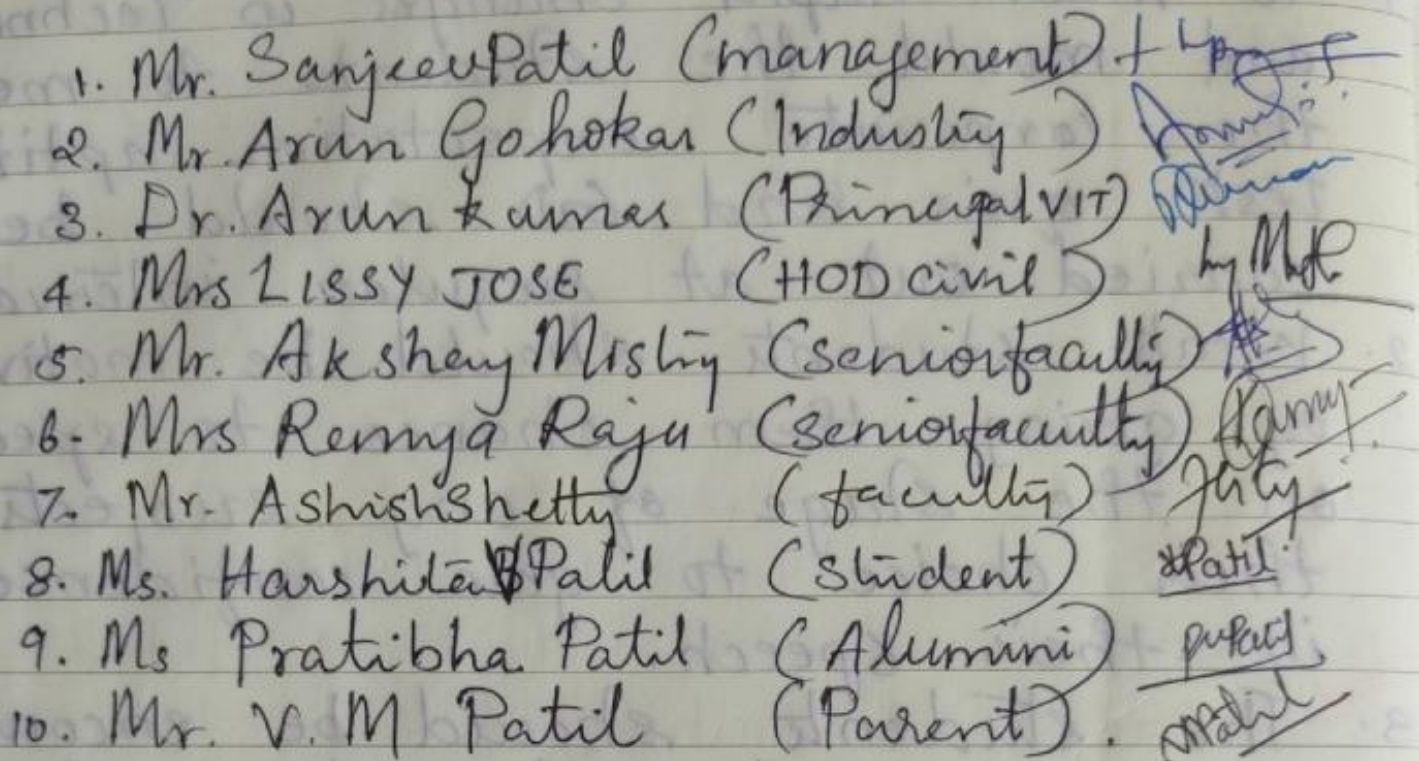 1. Mr. Sanjeev Patil (management)
2. Mr. Arun Gohokar (Industry)
3. Dr. Arun kumar (Principal VIT)
4. Mrs LISSY JOSE (HOD civil)
5. Mr. Akshay Mistry (senior faculty)
6. Mrs Remya Raju (senior faculty)
7. Mr. Ashish Shetty (faculty)
8. Ms. Harshita Patil (student) Patil
9. Ms Pratibha Patil (Alumini)
10. Mr. V. M Patil (Parent). Patil